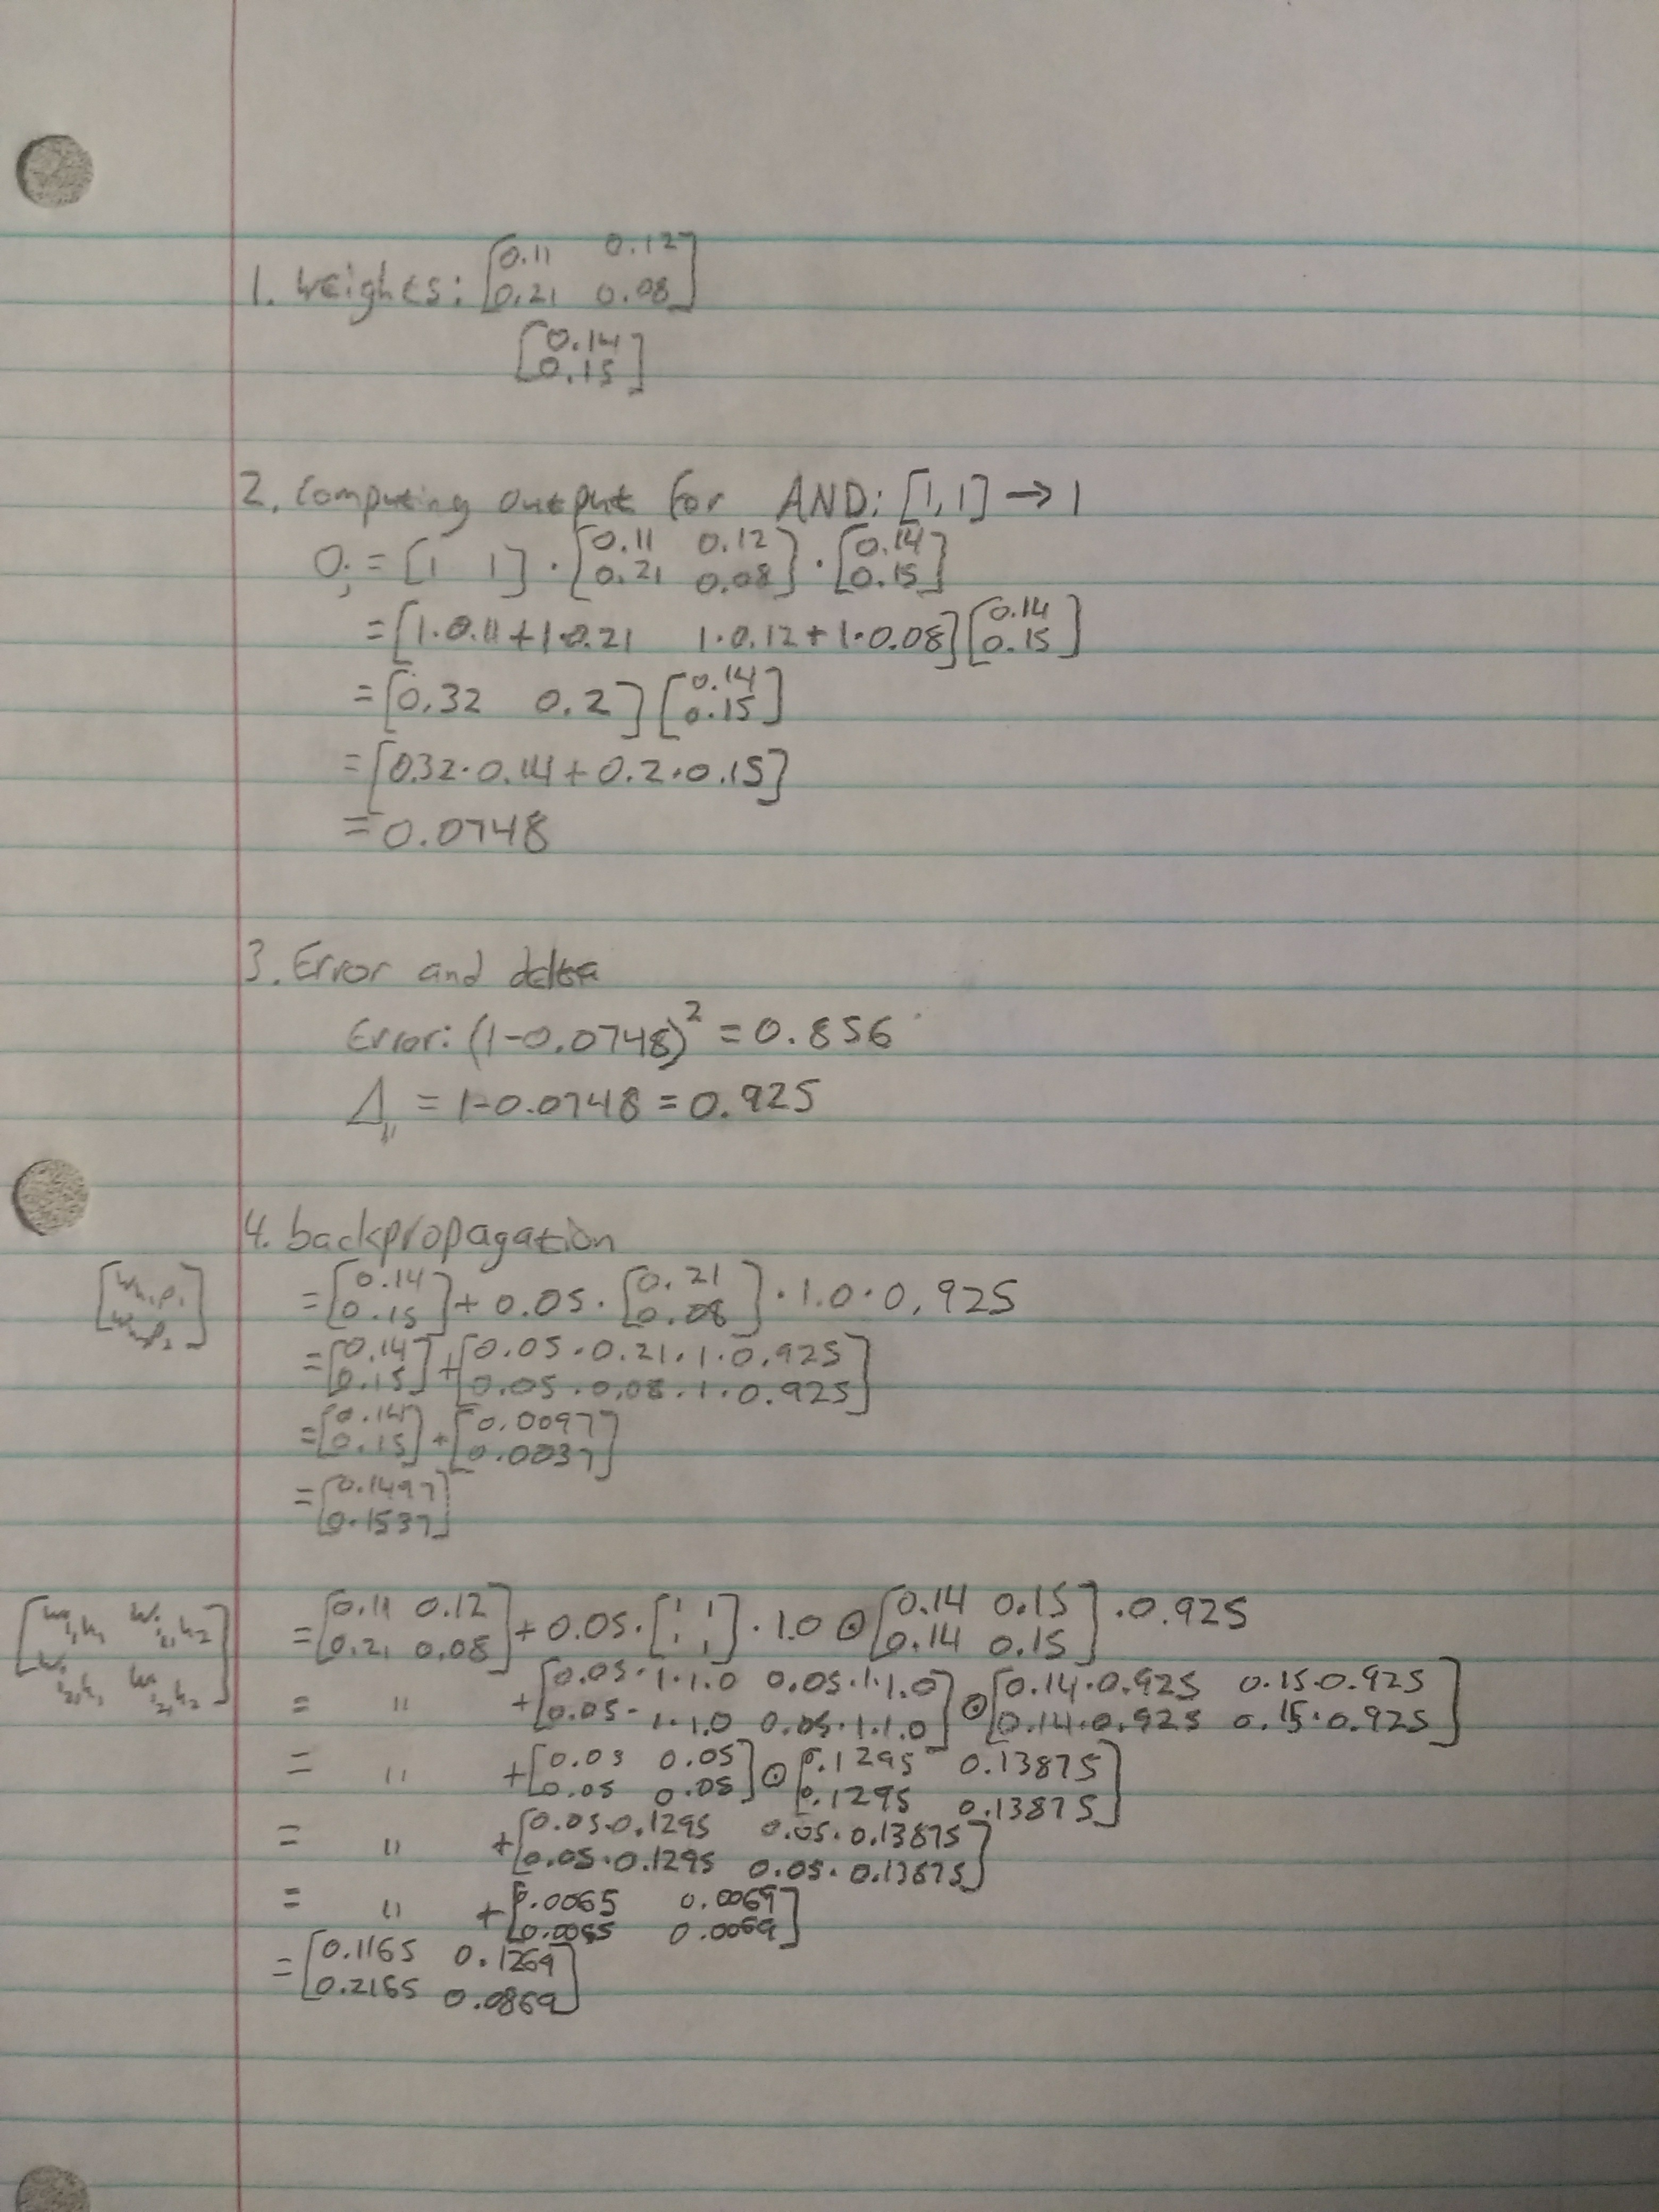 1. Weights: [0.11 0.12
0.21 0.08]
[0.14
0.15]
2. Computing output for AND: [1,1] → 1
Oj = [1 1] · [0.11 0.12
0.21 0.08] · [0.14
0.15]
= [1·0.11+1·0.21 1·0.12+1·0.08] [0.14
0.15]
= [0.32 0.2] [0.14
0.15]
= [0.32·0.14+0.2·0.15]
= 0.0748
3. Error and delta
Error: (1-0.0748)² = 0.856
Δ = 1-0.0748 = 0.925
4. backpropagation
= [0.14
0.15] + 0.05 · [0.21
0.08] · 1.0 · 0.925
= [0.14
0.15] + [0.05·0.21·1·0.925
0.05·0.08·1·0.925]
= [0.14
0.15] + [0.0097
0.0037]
= [0.1497
0.1537]
[wi1,h1 wi1,h2
wi2,h1 wi2,h2]
= [0.11 0.12
0.21 0.08] + 0.05 · [1 1
1 1] · 1.0 ⊙ [0.14 0.15
0.14 0.15] · 0.925
= " + [0.05·1·1.0 0.05·1·1.0
0.05·1·1.0 0.05·1·1.0] ⊙ [0.14·0.925 0.15·0.925
0.14·0.925 0.15·0.925]
= " + [0.05 0.05
0.05 0.05] ⊙ [0.1295 0.13875
0.1295 0.13875]
= " + [0.05·0.1295 0.05·0.13875
0.05·0.1295 0.05·0.13875]
= " + [0.0065 0.0069
0.0065 0.0069]
= [0.1165 0.1269
0.2165 0.0869]